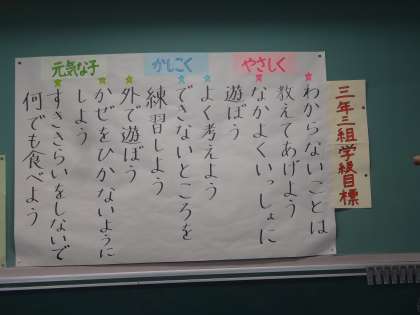 三年三組学級目標
やさしく
わからないことは
教えてあげよう
なかよくいっしょに
遊ぼう
かしこく
よく考えよう
できないところを
練習しよう
元気な子
外で遊ぼう
かぜをひかないように
しよう
すききらいをしないで
何でも食べよう